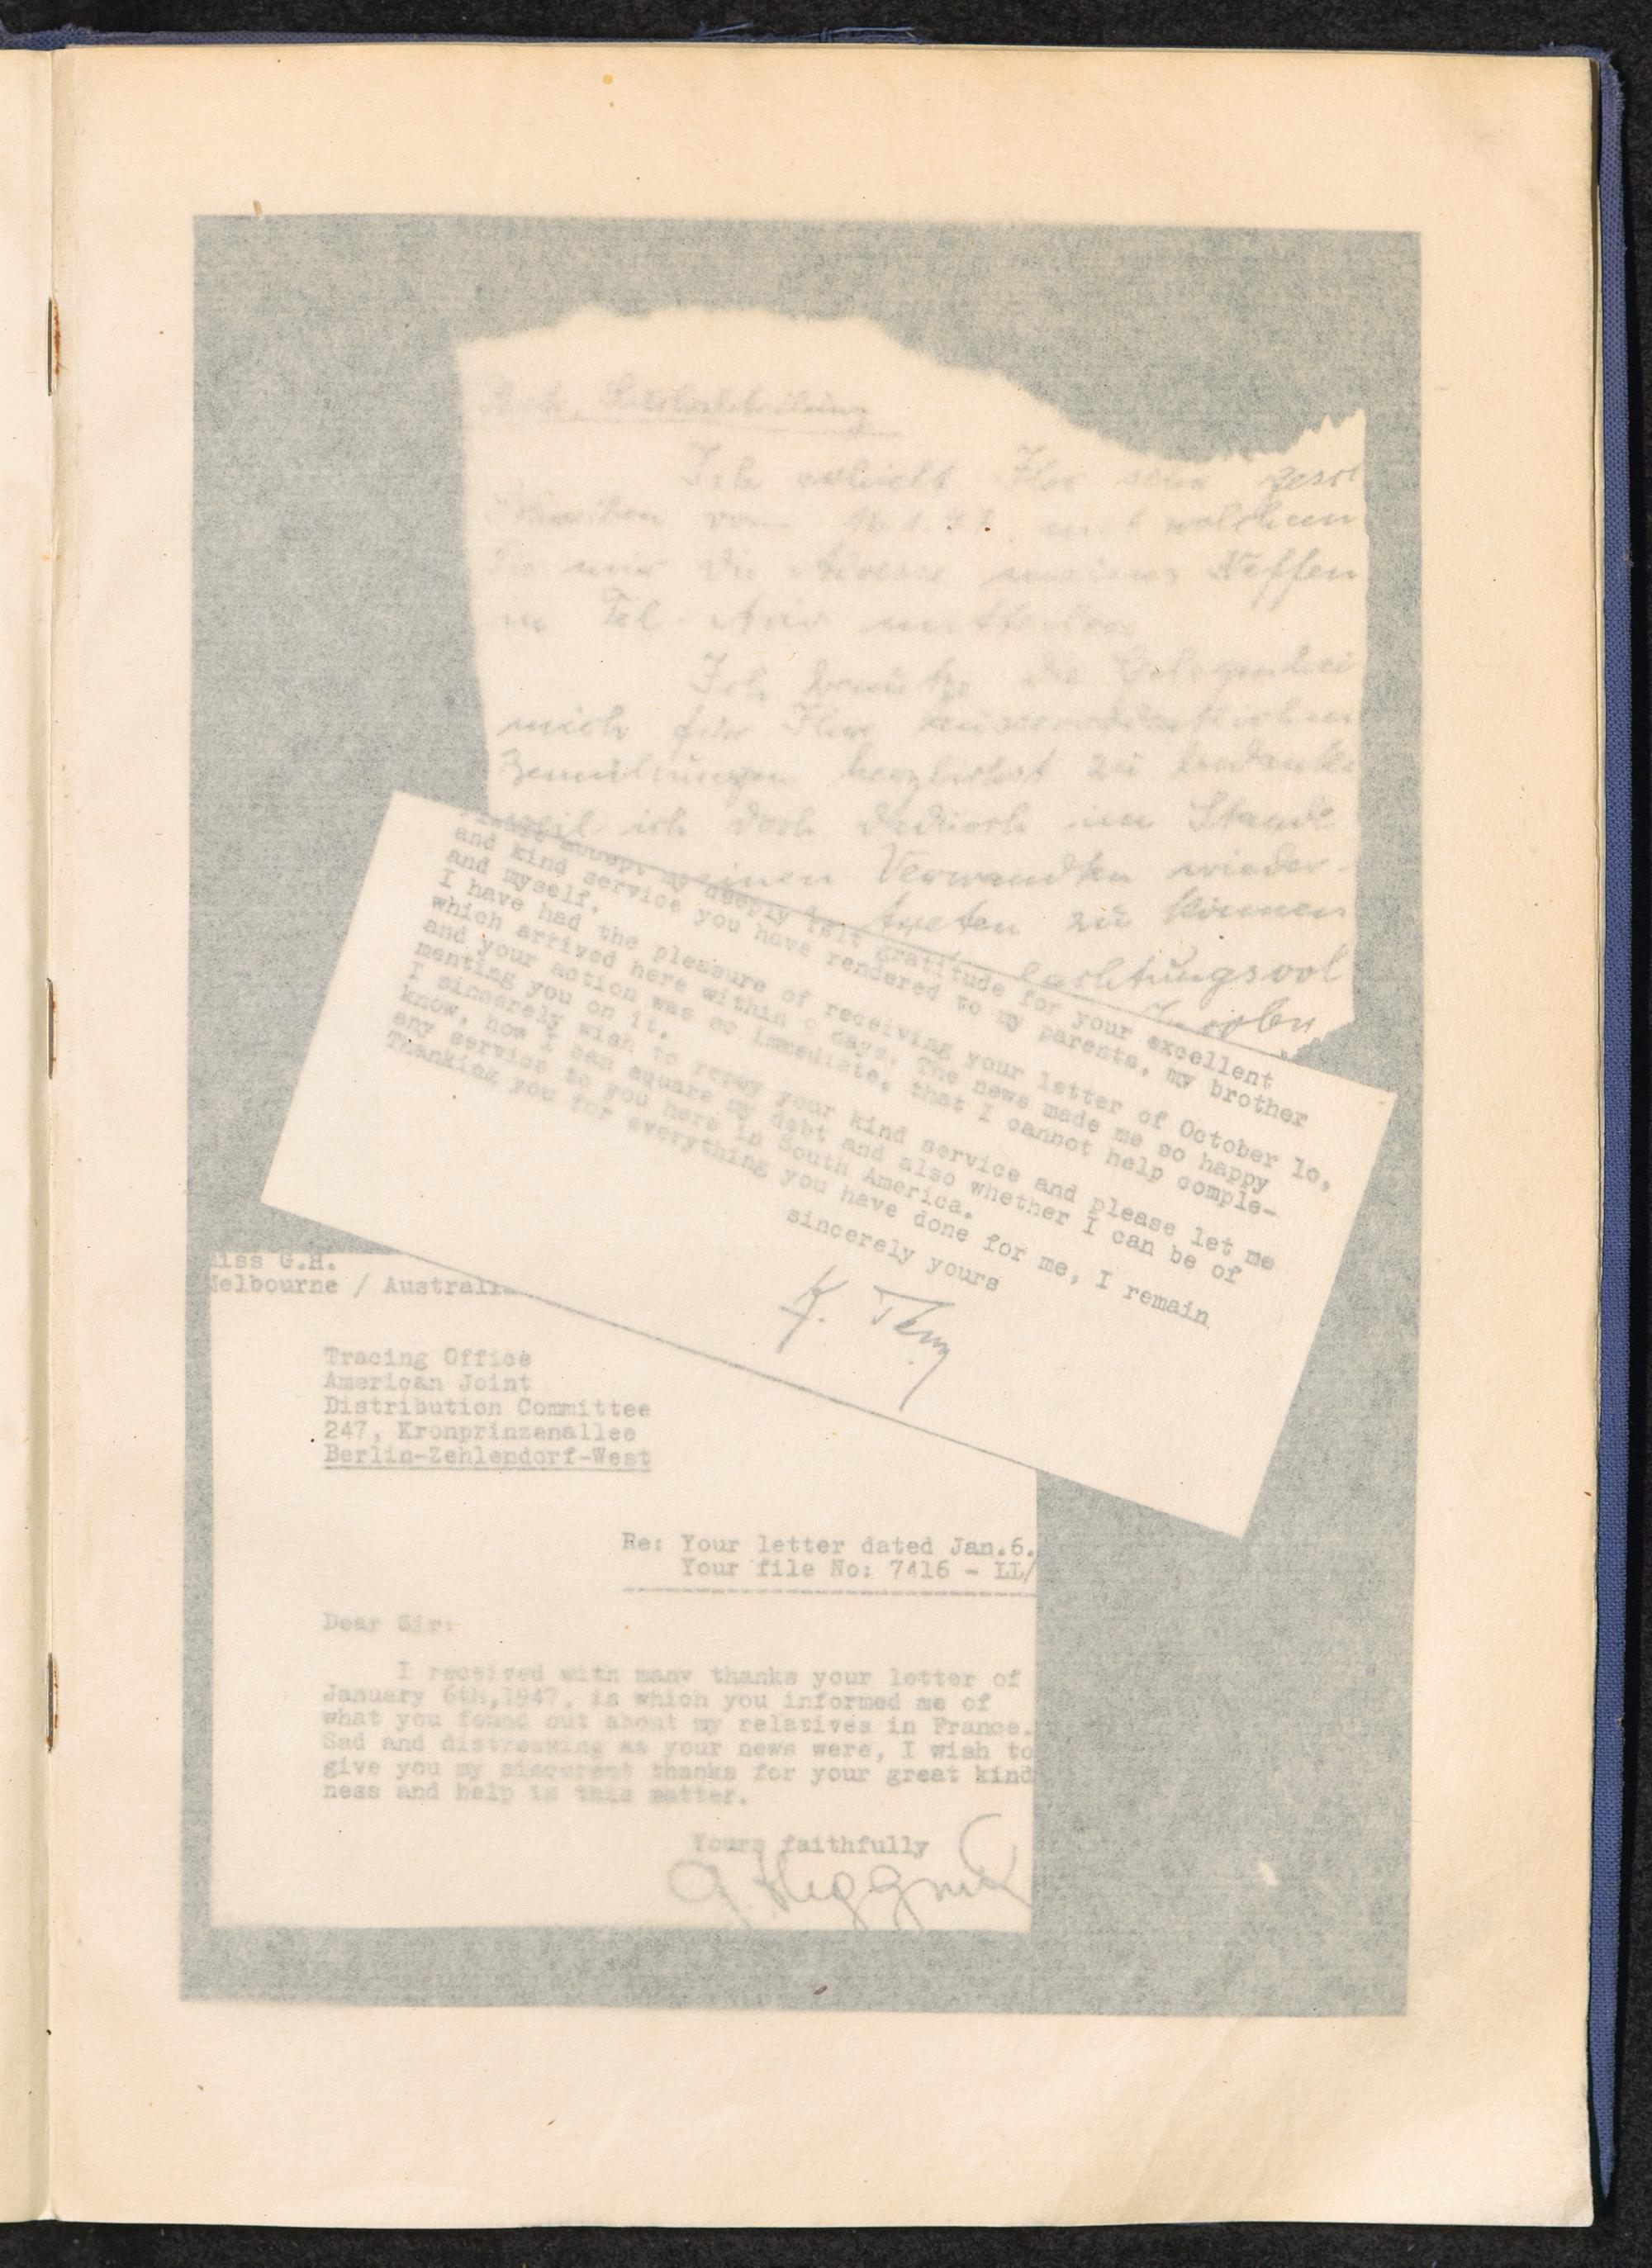 Ich erhielt Ihr sehr gesch
Schreiben vom 16.1.47. mit welchem
Sie mir die Adresse meines Neffen
in Tel. Aviv mitteilen
Ich benütze die Gelegenhei
mich für Ihre
Bemühungen herzlichst zu bedanke
weil ich doch dadurch im Stande
meinen Verwandten wieder-
treten zu können
achtungsvol
accept my deeply felt gratitude for your excellent
and kind service you have rendered to my parents, my brother
and myself.
I have had the pleasure of receiving your letter of October 10,
which arrived here within 9 days. The news made me so happy
and your action was so immediate, that I cannot help comple-
menting you on it.
I sincerely wish to repay your kind service and please let me
know, how I can square my debt and also whether I can be of
any service to you here in South America.
Thanking you for everything you have done for me, I remain
sincerely yours
Miss G.H.
Melbourne / Australi
Tracing Office
American Joint
Distribution Committee
247, Kronprinzenallee
Berlin-Zehlendorf-West
Re: Your letter dated Jan.6.
Your file No: 7416 - LL/
Dear Sir:
I received with many thanks your letter of
January 6th,1947, in which you informed me of
what you found out about my relatives in France.
Sad and distressing as your news were, I wish to
give you my sincerest thanks for your great kind
ness and help in this matter.
Yours faithfully